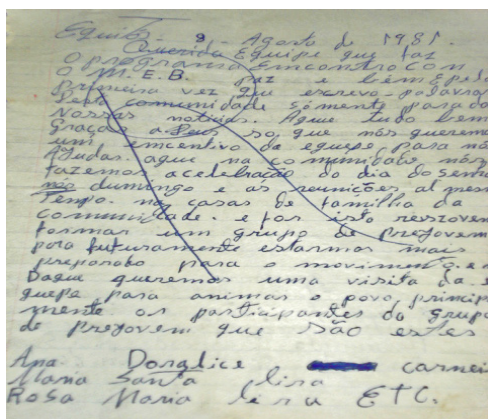 Equitós- 9 - Agosto de 1981.
Querida Equipe que faz
O programa Encontro Com
O M.E.B. paz e bem é pela
primeira vez que escrevo palavras
desta comunidade sómente para da
Nossas noticias. Aque tudo bem
Graças a Deus so que nós queremo
um emcentivo da equepe para nos
Ajudar. aqui na comunidade nós
fazemos a celebração do dia do senho
no domingo e as reuniões al mesm
Tempo. na casas de familha da
comunidade. e for isto resovem
formar um grupo de prejovem
para futuramente estarmos mais
preparado para o movimento. e n
Daque queremos uma visita da e
quepe para animar o povo, princip
mente os participantes do grupo
de prejovem que São estes
Ana Doralice carnei
Maria Santa lira
Rosa Maria lira ETC.